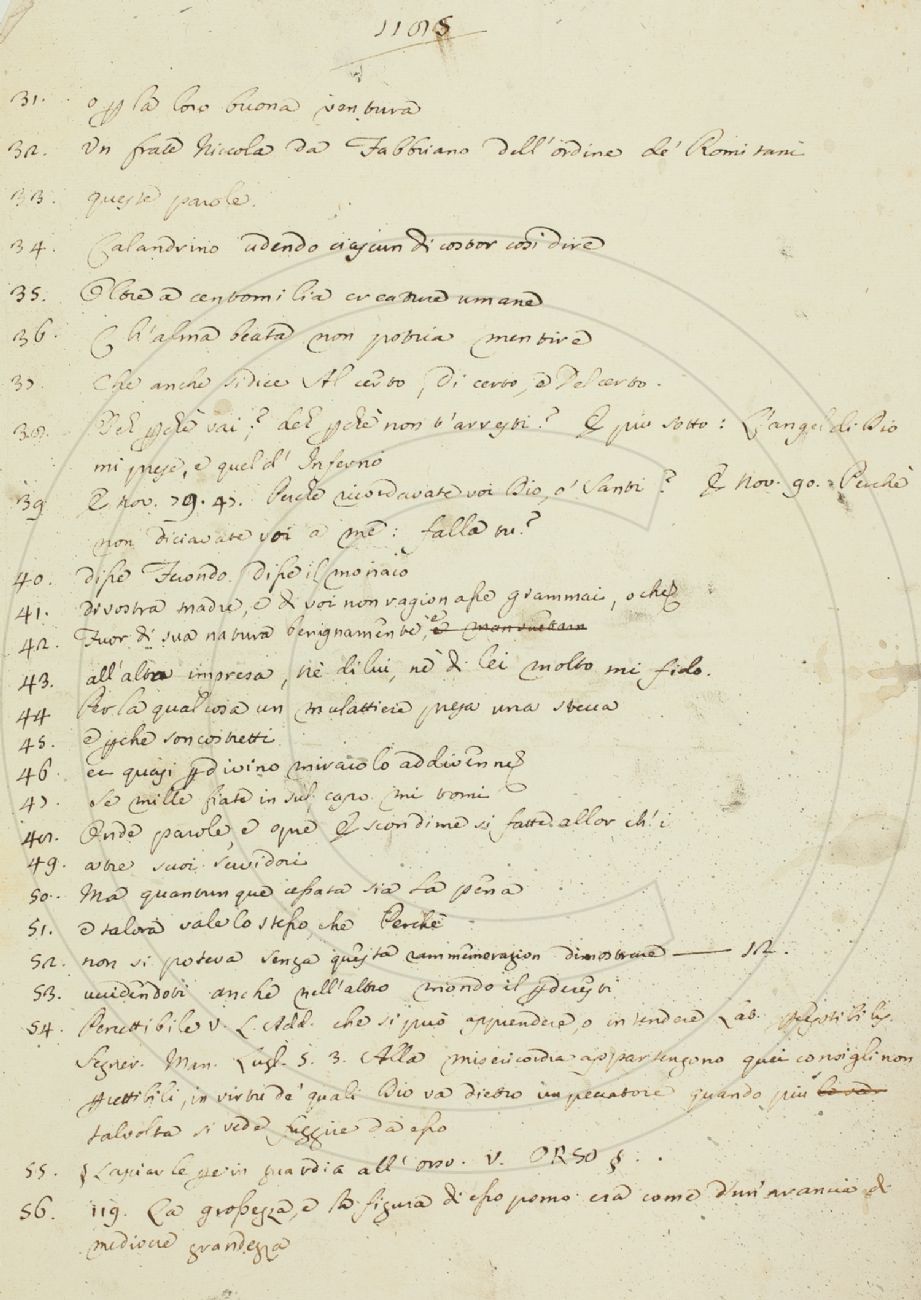 1185
31. o p la loro buona ventura
32. Un frate Niccola da Fabbriano dell'ordine de' Romitani
33. queste parole.
34. Calandrino udendo ciascun di costor così dire
35. Oltre a centomilia creature umane
36. Ch'alma beata non potria mentire
37. Che anche si dice Al certo, Di certo, e Del certo.
38. Deh pchè vai? deh pchè non t'arresti? E più sotto: L'angel di Dio
mi prese, e quel d'Inferno
39 E nov. 79. 47. Perchè ricordavate voi Dio, o' Santi? E Nov. 90. Perchè
non diciavate voi a me: falla tu?
40. disse Fuondo. disse il monaco
41. di vostra madre, e di voi non ragionasse giammai, o che
42. Fuor di sua natura benignamente, e mansueta
43. all'altra impresa, nè di lui, nè di lei molto mi fido.
44 Per la qual cosa un mulattiere presa una stecca
45. e pche son costretti
46. et quasi p divino miracolo addivenne
47. Se mille fiate in sul capo mi tomi
48. Onde parole, e opre E scon di me sì fatte allor ch'i
49. altre suoi servidori
50. Ma quantunque cessata sia la pena
51. e talora vale lo stesso, che Perchè
52. non si poteva senza questa rammemorazion dimostrare —— 12.
53. uccidendoti anche nell'altro mondo il pderesti
54. Percettibile V. L. Add. che si può apprendere, o intendere Lat.
Segner. Man. Lugl. 5. 3. Alla misericordia appartengono quei consigli non
pcettibili, in virtù de' quali Dio va dietro un peccatore quando più
talvolta si vede fuggire da esso
55. § Lasciar le pere in guardia all'orso. V. ORSO §.
56. 119. La grossezza, e la figura di esso pomo era come d'un'arancia di
mediocre grandezza